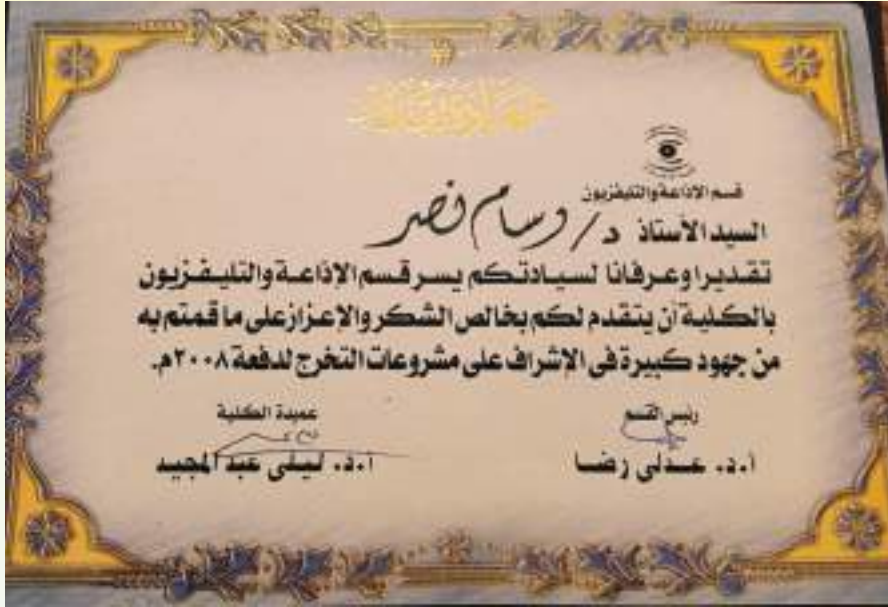 شهادة تقدير
قسم الإذاعة والتليفزيون
السيد الأستاذ د/ وسام نصر
تقديرا وعرفانا لسيادتكم يسر قسم الإذاعة والتليفزيون
بالكلية أن يتقدم لكم بخالص الشكر والإعزاز على ما قمتم به
من جهود كبيرة فى الإشراف على مشروعات التخرج لدفعة ٢٠٠٨م.
رئيس القسم عميدة الكلية
أ.د. عدلى رضا أ.د. ليلى عبد المجيد